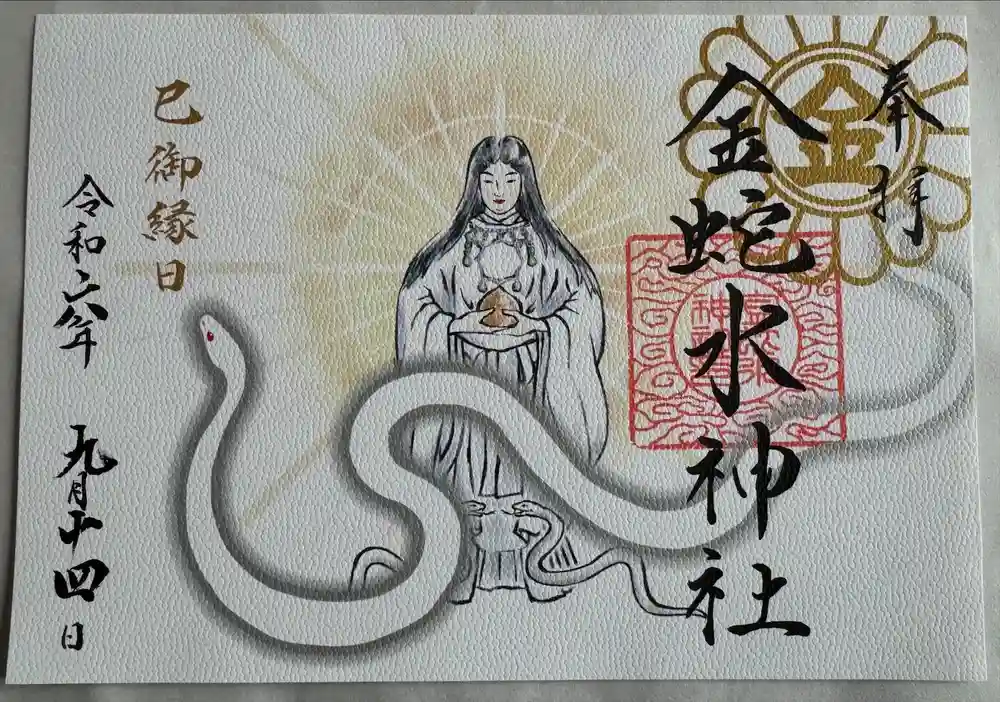 奉拝
金
金蛇水神社
巳御縁日
令和六年
九月十四日